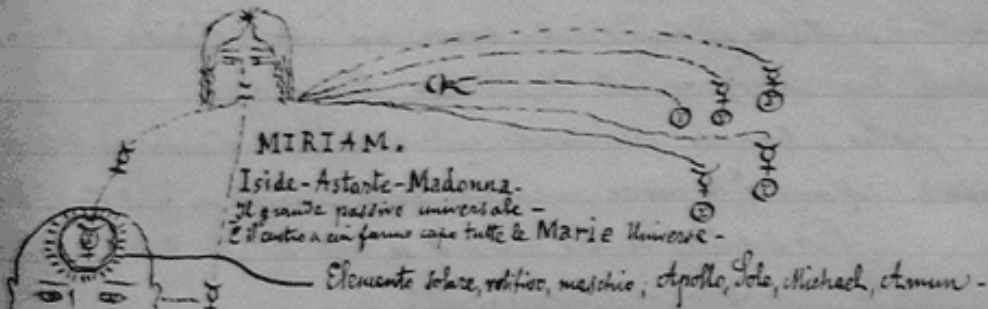 MIRIAM.
Iside-Astarte-Madonna-
Il grande passivo universale -
È il centro a cui fanno capo tutte le Marie Universe -
Elemento solare, maschio; Apollo, Sole, Michael, Amun -